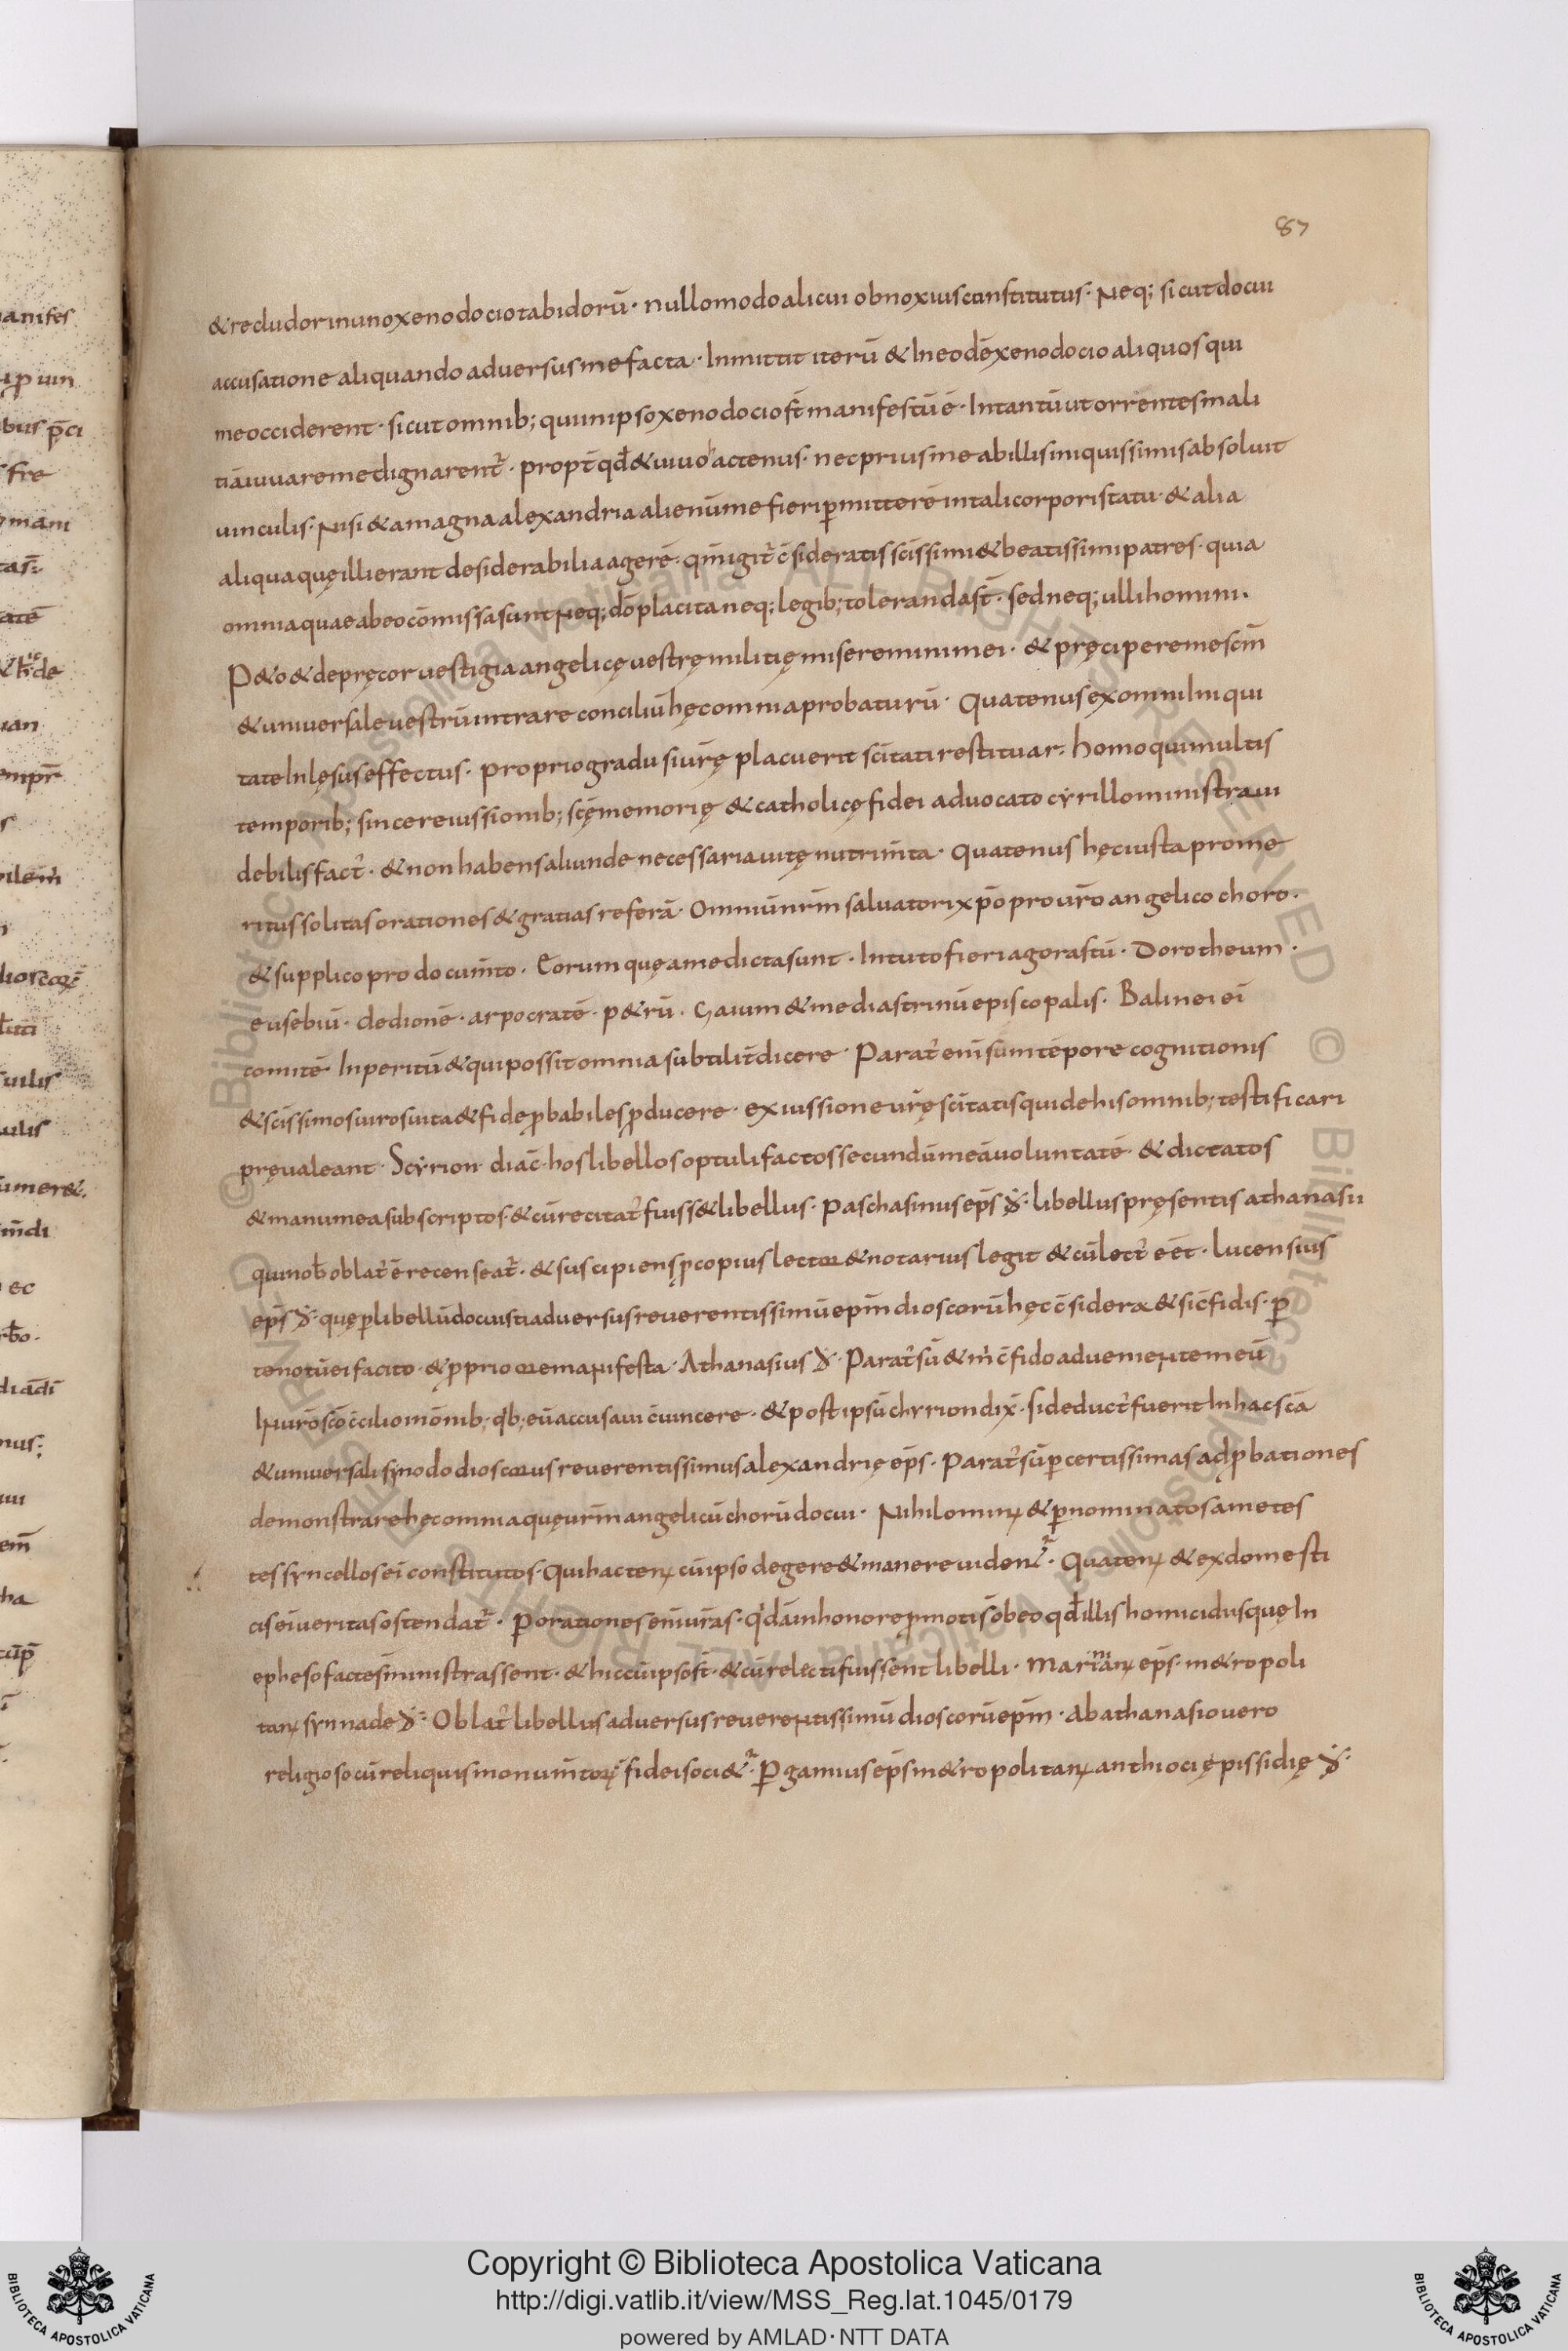 87
& recludor in uno xenodocio tabidorū · nullo modo alicui obnoxius constitutus · Neq; sicut docui
accusatione aliquando adversus me facta · Inmittit iterū & In eodē xenodocio aliquos qui
me occiderent · sicut omnib; qui in ipso xenodocio st̄ manifestū ē · Intantū ut orrentes mali
tiā iuvare me dignarent᷒ · propt̄ qđ & vivo hactenus · nec prius me ab illis iniquissimis absoluit
vinculis · Nisi & a magna alexandria alienū me fieri ꝑmitterē in tali corporis statu · & alia
aliqua quę illi erant desiderabilia agerē · qm̄ igit᷒ c̄sideratis sc̄issimi & beatissimi patres · quia
omnia quae ab eo cōmissa sunt Neq; dō placita neq; legib; toleranda st̄ · sed neq; ulli homini ·
P&o & depręcor vestigia angelicę vestrę militię miseremini mei · & pręcipere me sc̄m
& universale vestrū intrare conciliū hęc omnia probaturū · Quatenus ex omni Iniqui
tate Inlęsus effectus · proprio gradu si vr̄ę placuerit sc̄itati restituar · homo qui multis
temporib; sincere iussionib; sc̄ę memorię & catholicę fidei advocato cyrillo ministravi
debilis fact᷒ · & non habens aliunde necessaria vitę nutrim̄ta · Quatenus hęc iusta prome
ritus solitas orationes & gratias referā · Omniū nr̄m salvatori xp̄o pro vr̄o angelico choro ·
& supplico pro docum̄to · Eorum quę a me dicta sunt · In tuto fieri agorastū · Dorotheum ·
eusebiū · dedionē · arpocratē · p&rū · Gaium & mediastrinū episcopalis · Balinei ei
comitē Inperitū & qui possit omnia subtilit̄ dicere · Parat᷒ eni sum tēpore cognitionis
& sc̄issimos viros vita & fide ꝓbabiles ꝓducere · ex iussione vr̄ę sc̄itatis qui de his omnib; testificari
pręvaleant · Scyrion diac̄ · hos libellos optuli factos secundū meā voluntatē · & dictatos
& manu mea subscriptos · & cū recitat᷒ fuiss& libellus · Paschasinus ep̄s đ · libellus pręsentis athanasii
qui nob̄ oblat᷒ ē recenseat᷒ · & suscipiens ꝓcopius lector & notarius legit & cū lect᷒ eēt · lucensius
ep̄s đ · quę ꝑ libellū docuisti adversus reverentissimū epm̄ dioscorū hęc c̄sidera & si c̄fidis · ꝓ
te notū ei facito · & ꝓprio ore manifesta · Athanasius đ · Parat᷒ sū & m̄ c̄fido advenientem eū
In vr̄o sc̄o c̄cilio in ōnib; qib; eū accusavi c̄vincere · & post ipsū chyrion dix̄ · si deduct᷒ fuerit In hac sc̄a
& universali synodo dioscorus reverentissimus alexandrię ep̄s · Parat᷒ sū ꝑ certissimas adꝓbationes
demonstrare hęc omnia quę vr̄m angelicū chorū docui · Nihilomin᷒ & ꝑ nominatos a me tes
tes syncellos ei constitutos · Qui hacten᷒ cū ipso degere & manere viden᷒ · Quaten᷒ & ex domesti
cis ei veritas ostendat᷒ · ꝑ orationes eni vr̄as · qidā in honore ꝓmoti s̄ ob eo qđ illis homicidiis quę In
epheso facte s̄ ministrassent · & hic cū ipso st̄ · & cū relecti fuissent libelli · Marinian᷒ ep̄s · m&ropoli
tan᷒ synnade đ · Oblat᷒ libellus adversus reverentissimū dioscorū epm̄ · ab athanasio vero
religioso cū reliquis monum̄torū fidei soci&᷒ · Pergamius ep̄s m&ropolitan᷒ anthiocię pissidię đ ·
Copyright © Biblioteca Apostolica Vaticana
http://digi.vatlib.it/view/MSS_Reg.lat.1045/0179
powered by AMLAD·NTT DATA